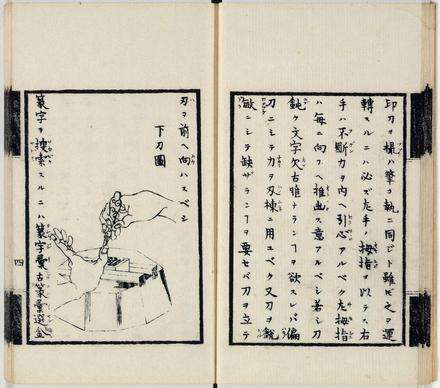 印刀ヲ操ハ筆ヲ執ニ同ジト雖ドモ之ヲ運
轉スルニハ必ズ左手ノ拇指ヲ以テス右
手ハ不断力ヲ内ヘ引心アルベク左拇指
ハ毎ニ向フヘ推出ス意アルベシ若シ刀
鈍ク文字欠古雅ナランヿヲ欲スレバ偏
刀ニシテ力ヲ刃棟ニ用ユベク又刀ヲ鋭
敏ニシテ缺ザランヿヲ要セバ刀ヲ立テ
刃ヲ前ヘ向ハスベシ
下刀圖
篆字ヲ捜索スルニハ篆字彙古篆彙選金
四